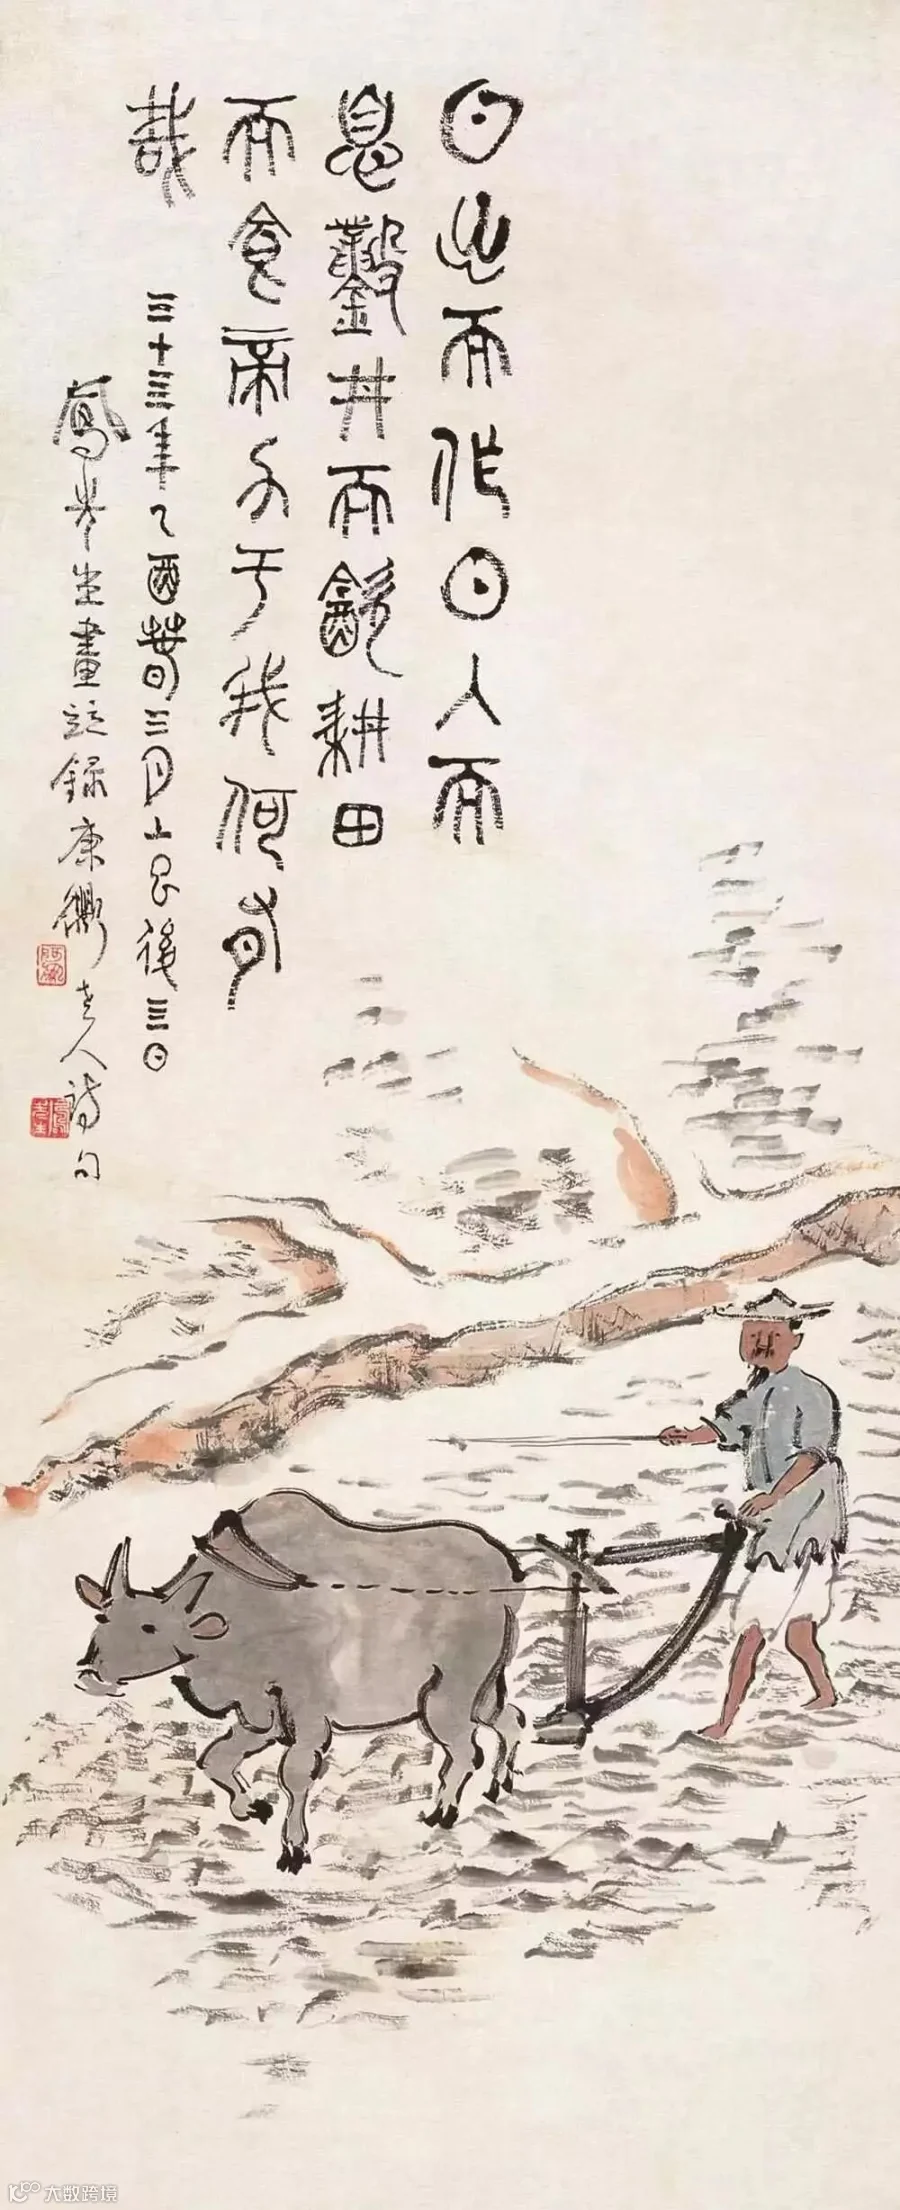 日出而作日入而
息鑿井而飲耕田
而食帝力于我何有
哉
三十亖年乙酉春三月上巳後三日
鳳先生畫竝錄康衢老人詩句
大数跨境